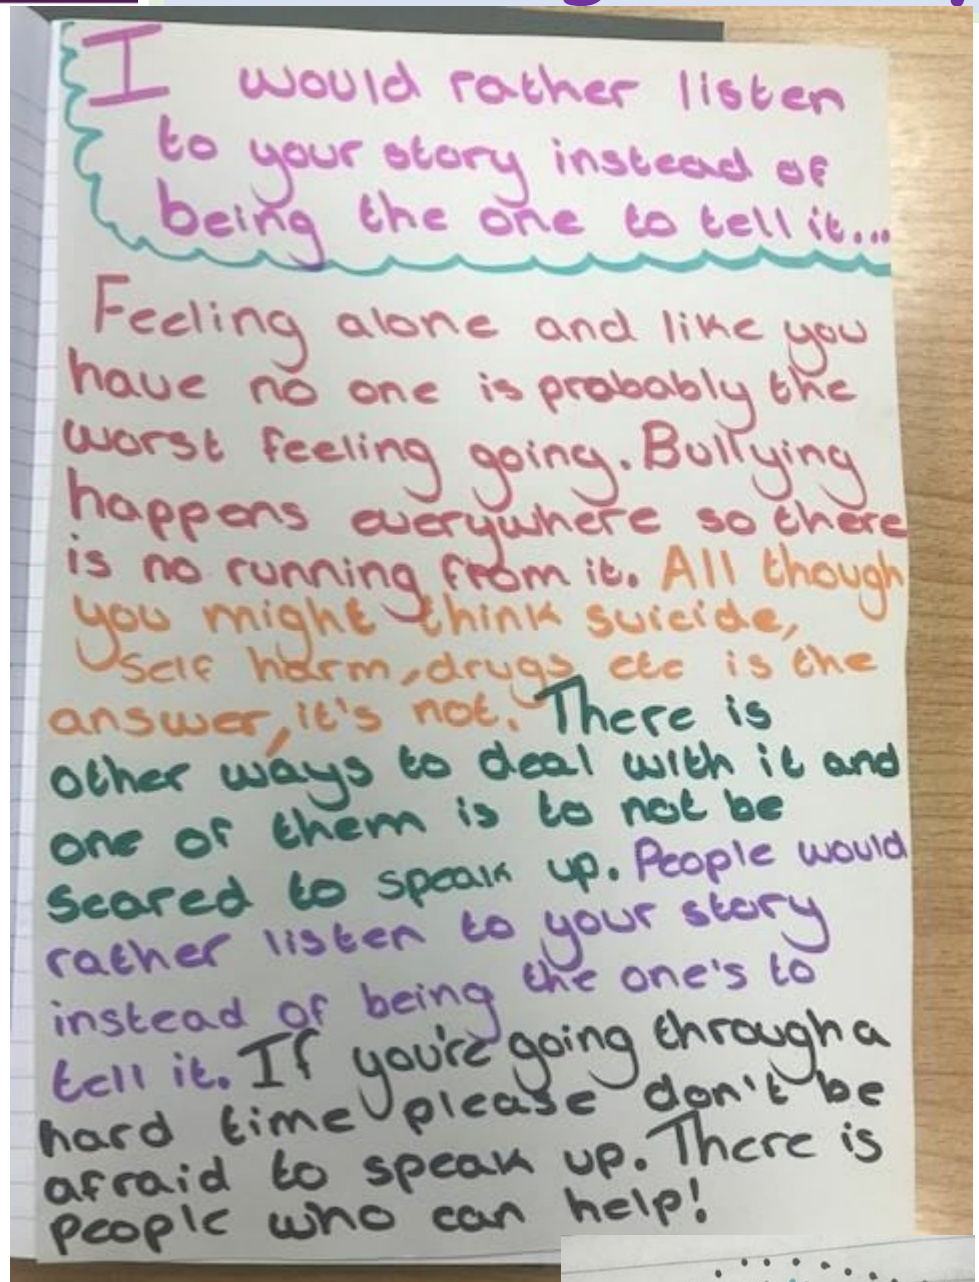 I would rather listen
to your story instead of
being the one to tell it...
Feeling alone and like you
have no one is probably the
worst feeling going. Bullying
happens everywhere so there
is no running from it. All though
you might think suicide,
self harm, drugs etc is the
answer, it's not. There is
other ways to deal with it and
one of them is to not be
scared to speak up. People would
rather listen to your story
instead of being the one's to
tell it. If you're going through a
hard time please don't be
afraid to speak up. There is
people who can help!